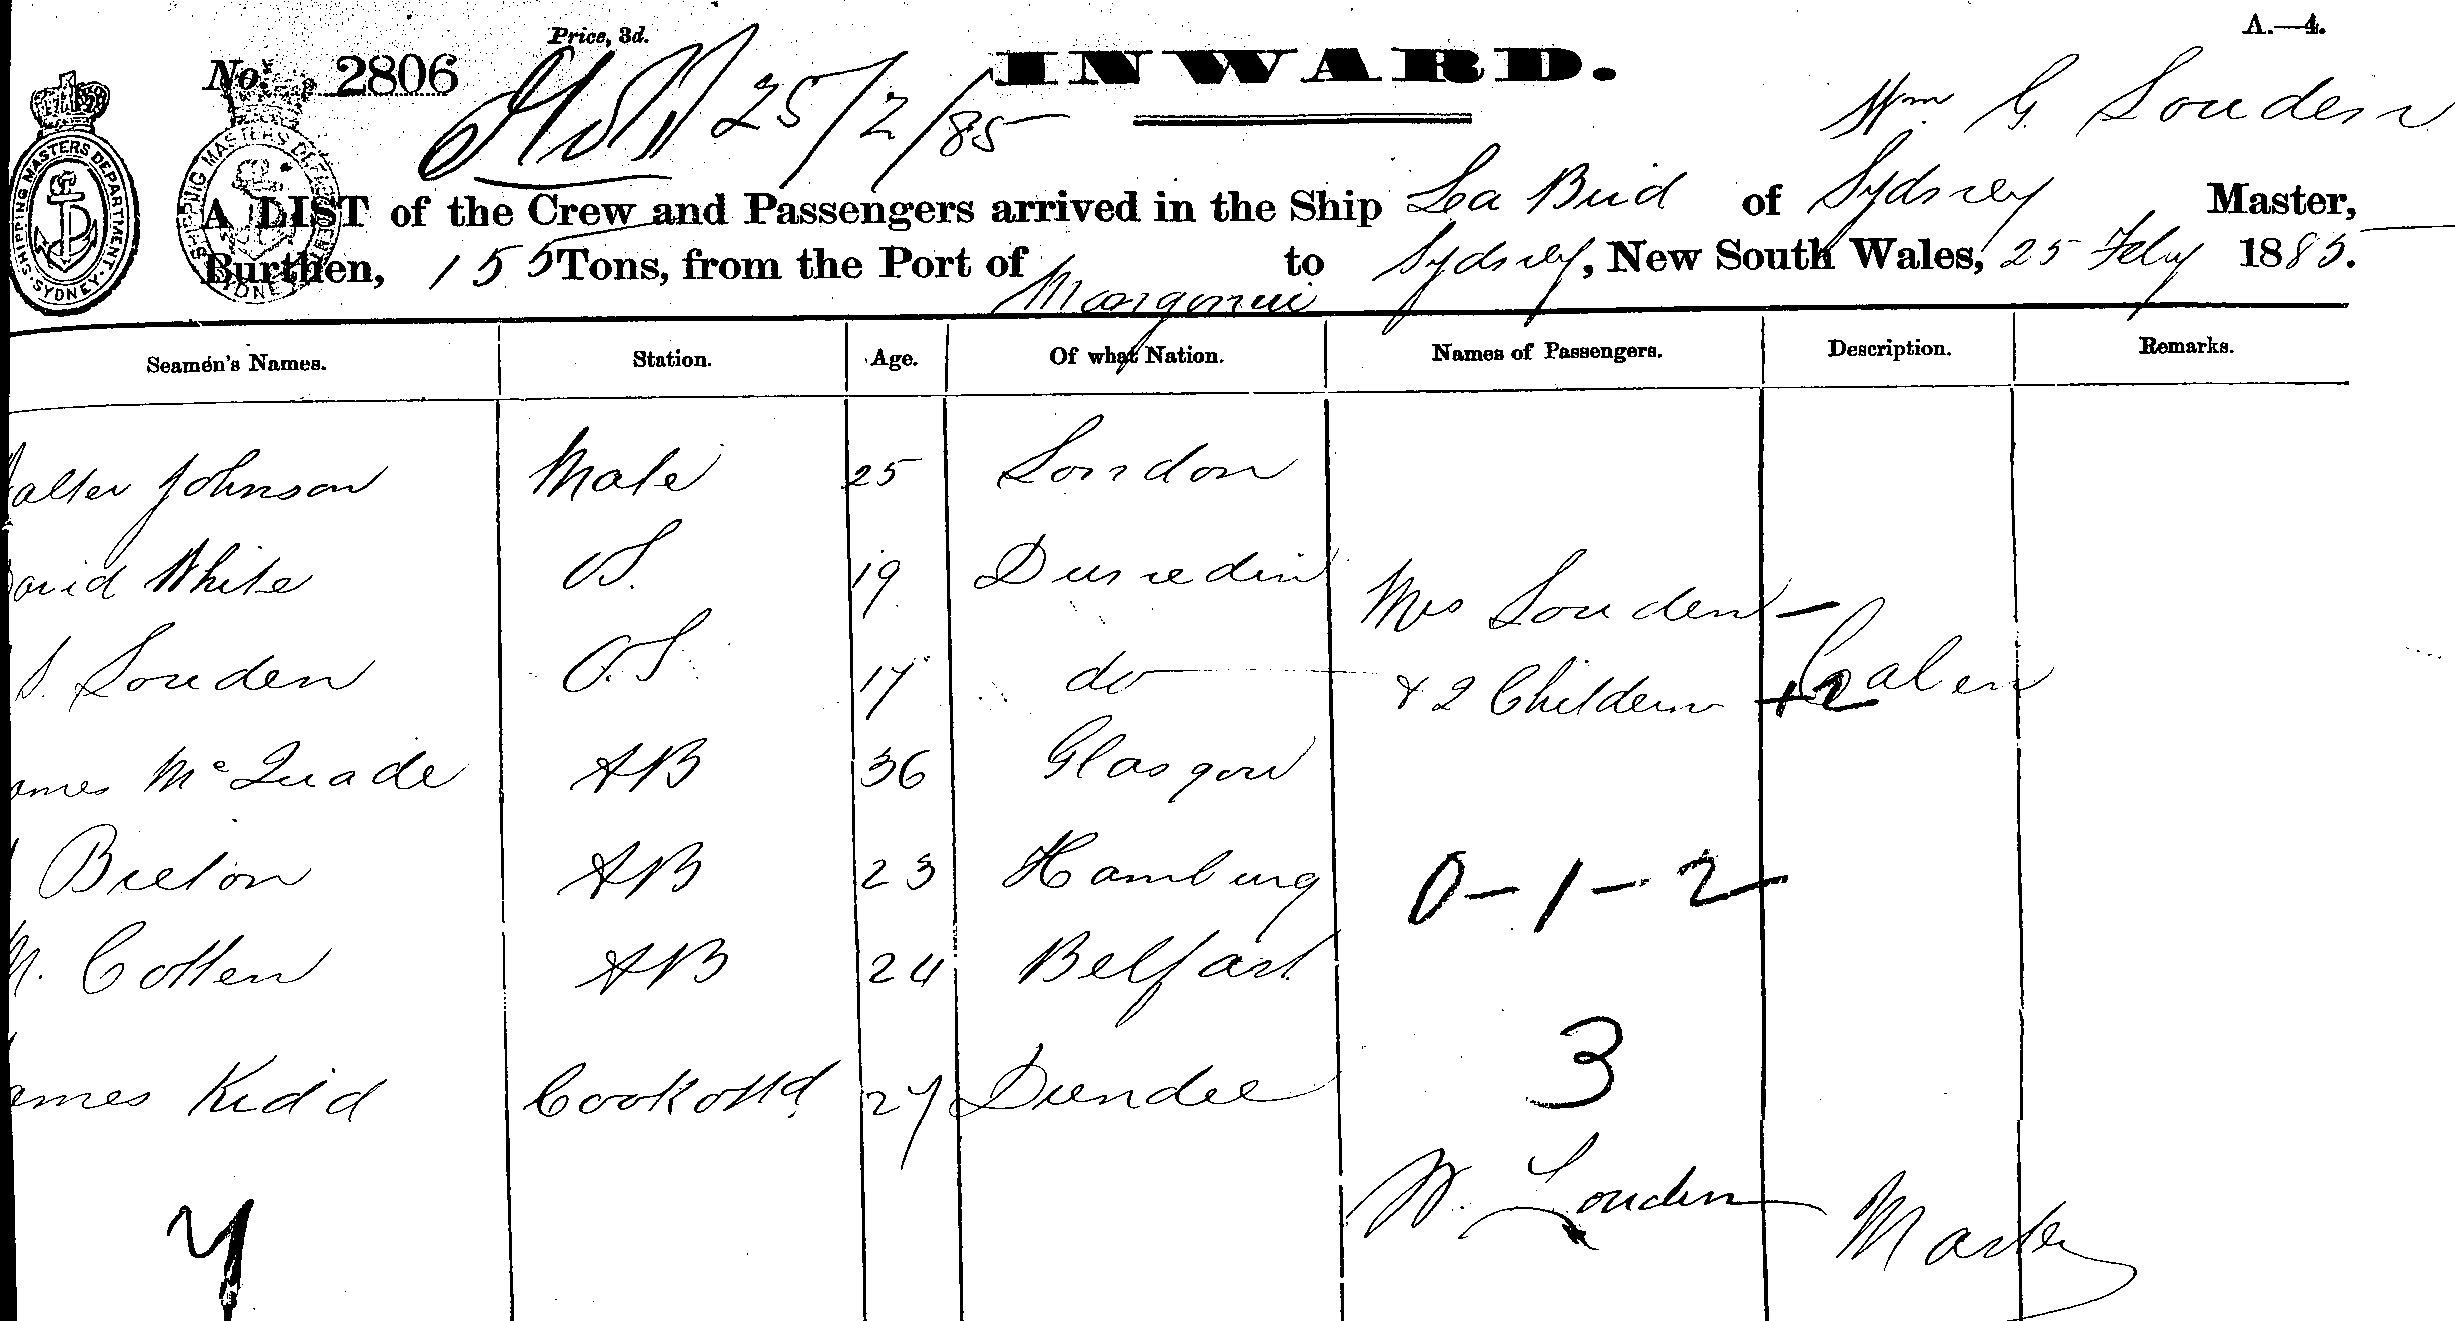 A.—4.
Price, 3d.
No. 2806
INWARD.
25/2/85
Wm G. Louden
A LIST of the Crew and Passengers arrived in the Ship La Buid of Sydney Master,
Burthen, 155 Tons, from the Port of Mangonui to Sydney, New South Wales, 25 Feby 1885.
SHIPPING MASTERS DEPARTMENT. SYDNEY.
SHIPPING MASTERS DEPARTMENT SYDNEY
Seamen's Names. Station. Age. Of what Nation. Names of Passengers. Description. Remarks.
alter Johnson Mate 25 London
David White OS. 19 Dunedin Mrs Louden —
S. Louden O.S 17 do & 2 Childern +2 Cabin
ames McQuade AB 36 Glasgow
Breton AB 23 Hamburg 0-1-2
M. Cotten AB 24 Belfast
3
ames Kidd Cook & Std 27 Dundee
W. Louden Master
7